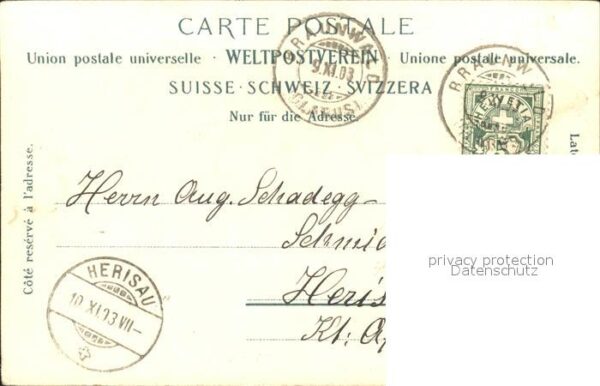 CARTE POSTALE
Union postale universelle · WELTPOSTVEREIN · Unione postale universale.
SUISSE · SCHWEIZ · SVIZZERA
Nur für die Adresse.
BRAUNWALD
9.XI.03
(GLARUS)
BRAUNWALD
HELVETIA
Côté reservé à l'adresse.
Late
Herrn Aug. Schadegg-
Schmid
Heris
Kt. Ap
HERISAU
10.XI.03 VII-
privacy protection
Datenschutz